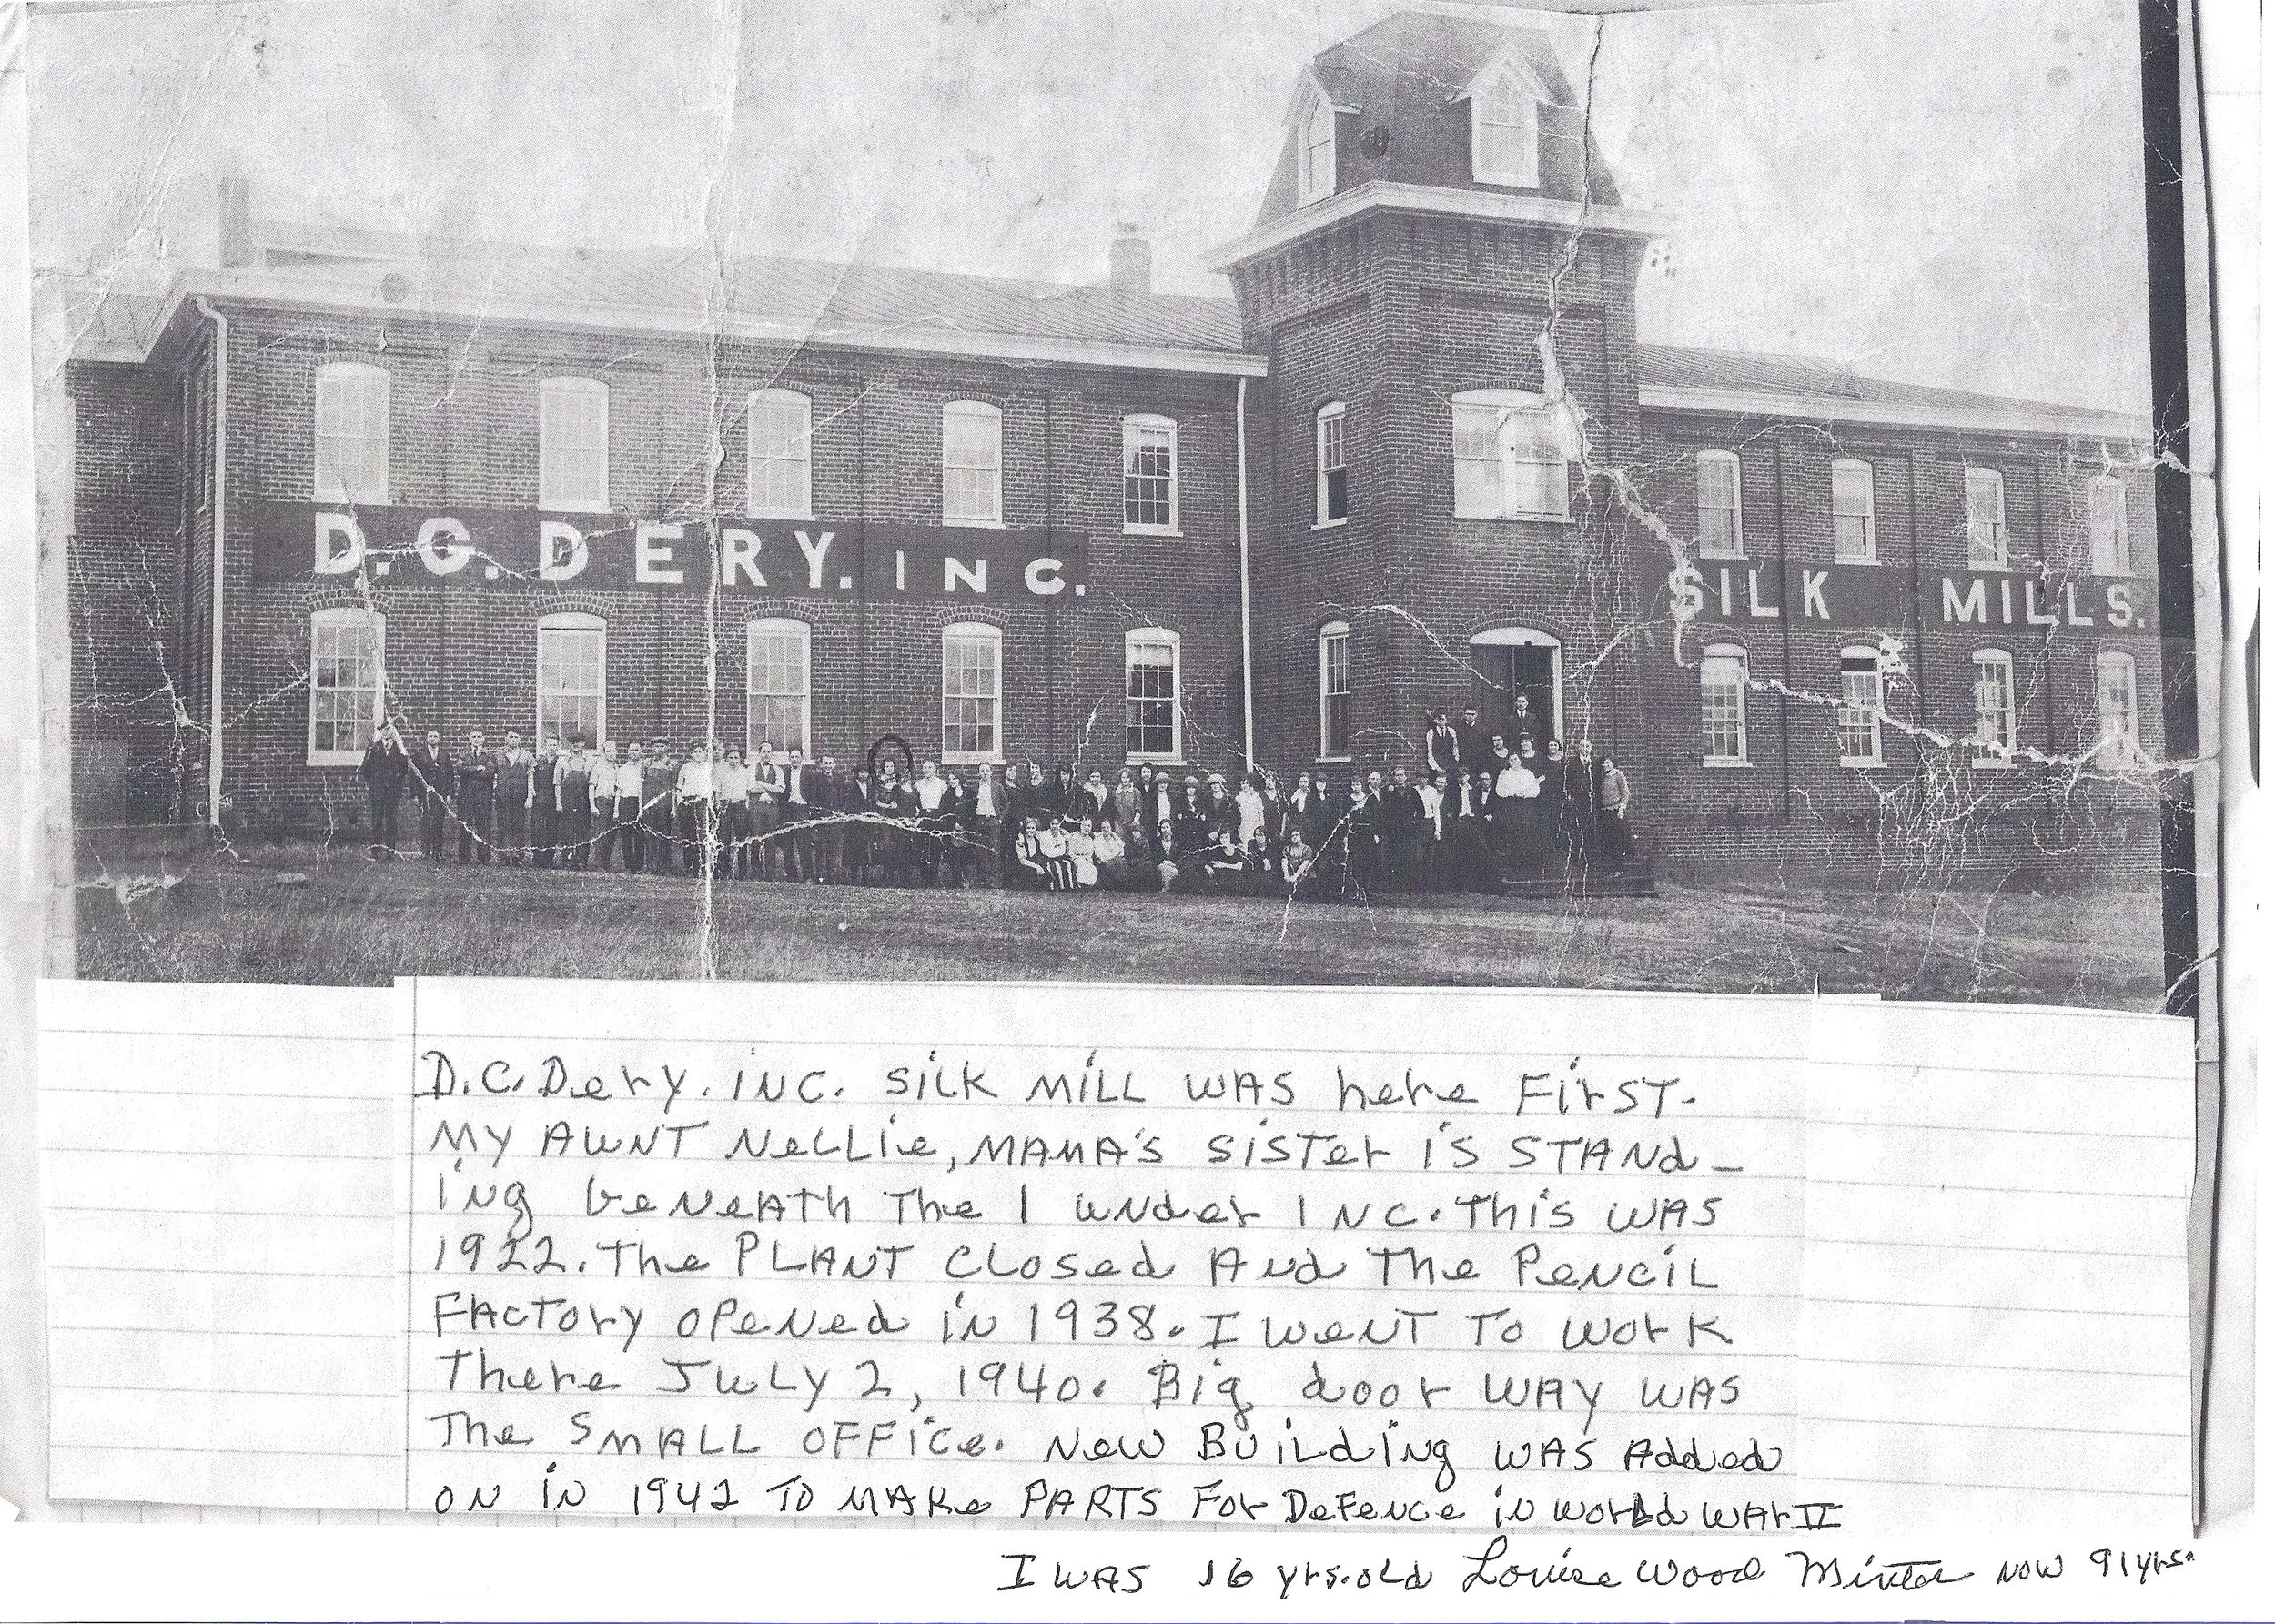 D.G. DERY. INC.
SILK MILLS.
D.C. Dery. INC. SILK MILL WAS here FirST.
MY AUNT NeLLie, MAMA'S SISTer IS STANd-
ING beNeATh The I under INC. This WAS
1922. The PLANT CLosed ANd The PeNCIL
FACTOry OPeNed IN 1938. I weNT To work
There JULY 2, 1940. Big door WAY WAS
The SMALL OFFice. New BuiLding WAS Added
ON IN 1942 TO MAKe PARTS For DeFeNce in worLd WAr II
I WAS 16 yrs. old Louise Wood Minter NOW 91 yrs.